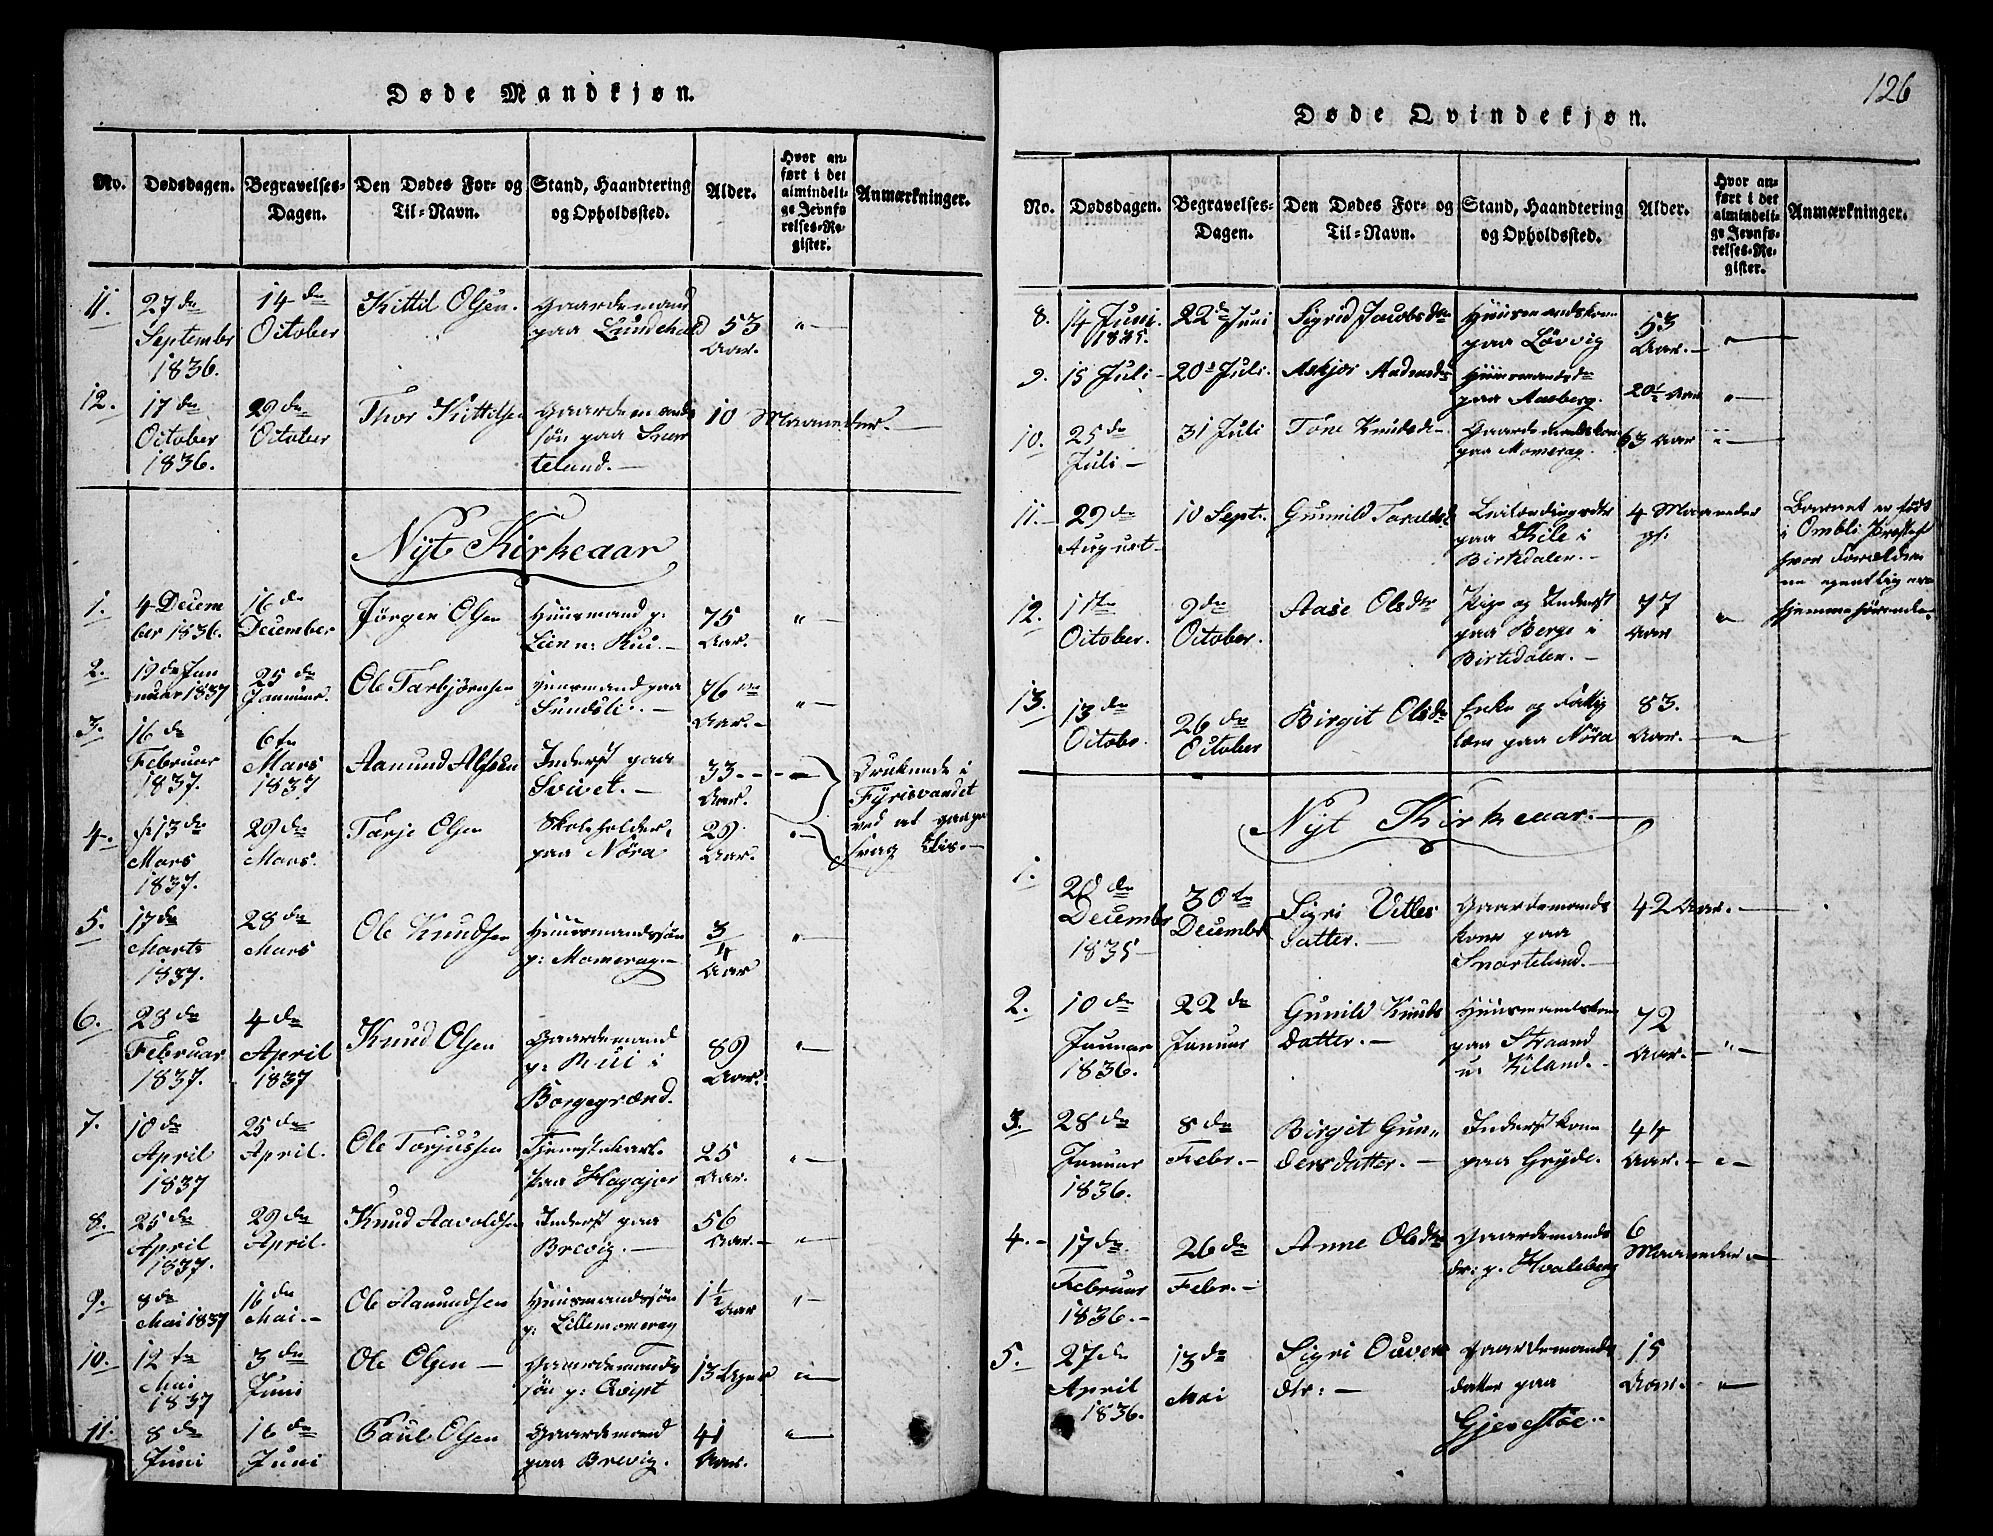 Døde Mandkjøn.
No. Dødsdagen. Begravelses-Dagen. Den Dødes For- og Til-Navn. Stand, Haandtering og Opholdssted. Alder. Hvor anført i det almindelige Jevnførelses-Register. Anmærkninger.
11. 27de September 1836. 14de October Kittil Olsen. Gaardemand paa Lundehald 53 Aar. "
12. 17de October 1836. 29de October Thor Kittilsen Gaardemands søn paa Snarteland. 10 Maaneder.
Nyt Kirkeaar
1. 4 December 1836. 16de December Jørgen Olsen Huusmand p. 75 Aar "
2. 19de Januar 1837 25de Januar. Ole Tarbjørnsen Huusmand paa Sundsli. 76 Aar. "
3. 16de Februar 1837. 6te Mars 1837 Aamund Alfsen Inderst paa Svivet. 33 Aar.
4. 13de Mars 1837. 29de Mars. Tarje Olsen Skoleholder paa Nöra 29 Aar. "
Druknede i Fyrisvandet ved at gaae paa svag Iis.
5. 17de Marts 1837. 28de Mars Ole Knudsen Huusmandssøn p: Momrag. 3/4 Aar "
6. 28de Februar 1837. 4de April 1837 Knud Olsen Gaardemand p: Rui i Borgegrænd. 89 Aar. "
7. 10de April 1837 25de April. Ole Torjussen Tjenestekarl paa Hagajor 25 Aar. "
8. 25de April 1837. 29de April. Knud Aavoldsen Inderst paa Brevig. 56 Aar. "
9. 8de Mai 1837 16de Mai. Ole Aamundsen Huusmandssøn p: Lillemomrag 1 1/2 Aar "
10. 12te Mai 1837 3de Juni Ole Olsen Gaardemands søn p: Qvipt 13 Uger "
11. 8de Juni 16de Juni Paul Olsen Gaardemand paa Brevig. 41 Aar. "
126
Døde Qvindekjøn.
No. Dødsdagen. Begravelses-Dagen. Den Dødes For- og Til-Navn. Stand, Haandtering og Opholdssted. Alder. Hvor anført i det almindelige Jevnførelses-Register. Anmærkninger.
8. 14 Juni. 1835. 22de Juni Sigrid Jacobsdr Huusmandskone paa Løvvig 53 Aar. "
9. 15 Juli 20de Juli. Huusmandsdr paa Aasberg. 20 1/2 Aar "
10. 25de Juli 31 Juli Tone Knudsdr Gaardemandskone paa Momerag. 63 Aar "
11. 29de August 10 Sept. Gunnild Taraldsd Leilændingsdtr paa Kile i Birkedalen. 4 Maaneder
Barnet er födt i Ombli Præstef hvor Forældrene egentlig ere hjemmehörende
12. 1ste October. 9de October. Aase Olsdtr Pige og Inderst paa Berge i Birtedalen. 77 Aar "
13. 13de Octobr. 26de October Birgit Olsdr Enke og Fattiglem paa Nöra 83. Aar. "
Nyt Kirkeaar.
1. 20de Decembr 1835 30te Decembr Sigri Vetles datter. Gaardemands kone paa Snarteland. 42 Aar.
2. 10de Januar 1836. 22de Januar Gunild Knuds Datter. Huusmandskone paa Straand u: Kiland. 72 Aar. "
3. 28de Januar 1836. 8de Febr. Birgit Gundersdatter. Inderstkone paa Gryde. 44 Aar. "
4. 17de Februar 1836. 26de Febr. Anne Olsdtr Gaardemands dr: p. Hvaleberg 6 Maaneder
5. 27de April 1836. 13de Mai Sigri Ouvers dtr: Gaardemands datter paa Gjevestöe. 15 Aar. "